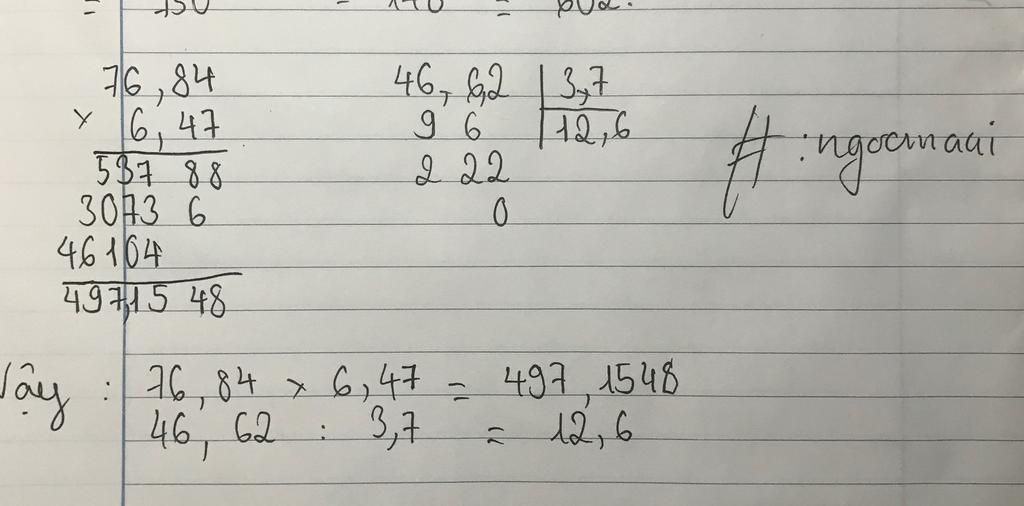 = 150 = 140 = 602.
76,84
× 6,47
537 88
3073 6
46104
497,15 48
46,62 3,7
9 6 12,6
2 22
0
# : ngocmaai
Vậy : 76,84 × 6,47 = 497,1548
46,62 : 3,7 = 12,6